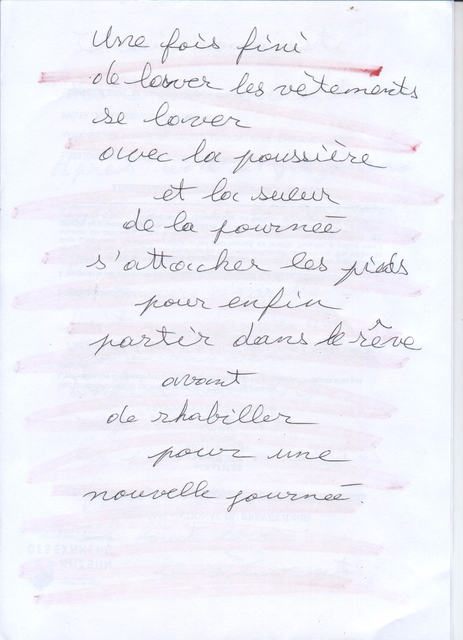 Une fois fini
de laver les vêtements
se laver
avec la poussière
et la sueur
de la journeé
s'attacher les pieds
pour enfin
partir dans le rêve
avant
de rhabiller
pour une
nouvelle journeé.